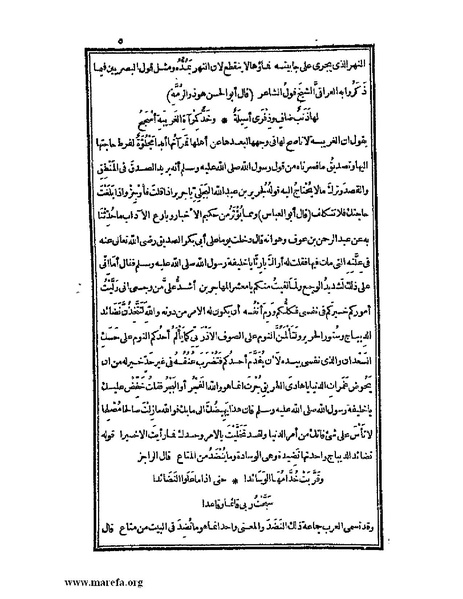 ٥
النهر الذي يجري على جانبيه فماؤها لا ينقطع لان النهر يَمُدُّه ومثل قول البصريين فيما
ذكروا به العراقي الشيخ قول الشاعر (قال أبو الحسن هو ذو الرمة)
لها ذَنَبٌ ضافٍ وذِفْرَى أسِيلَةٌ * وخَدٌّ كَمِرآة الغَرِيبة أسْجَحُ
يقول ان الغريبة لا ناصح لها في وجهها لبعدها عن أهلها فمرآتها أبدا مجلوّة لفرط حاجتها
اليها وتصديق ما فسرناه من قول رسول الله صلى الله عليه وسلم أنه يريد الصدق في المَنْطِق
والقصد وترك ما لا يُحتاج اليه قوله لجرير بن عبد الله البَجَلي يا جرير اذا قلت فأوجز واذا بلغت
حاجتك فلا تتكلف (قال أبو العباس) ومما يُؤثَر من حكيم الأخبار وبارع الآداب ما حُدِّثنا
به عن عبد الرحمن بن عوف وهو أنه قال دخلت يوما على أبي بكر الصديق رضى الله تعالى عنه
في علّته التي مات فيها فقلت له أراك بارئا يا خليفة رسول الله صلى الله عليه وسلم فقال أما اني
على ذلك لشديد الوجع ولما لقيت منكم يا معشر المهاجرين أشدُّ علىّ من وجعى انى ولّيت
أموركم خيركم في نفسى فكلكم ورِم أنفُه أن يكون له الامر من دونه والله لَتَتَّخِذُنَّ نضائد
الديباج وستور الحرير ولتألمُنَّ النوم على الصوف الأذْرَبى كما يألم أحدكم النوم على حَسَك
السعدان والذي نفسى بيده لأن يُقدَّم أحدكم فتُضرَب عُنُقُه في غير حدّ خير له من أن
يخوض غَمَرات الدنيا يا هادى الطريق جُرْت انما هو والله الفَجْر أو البَجْر فقلت خَفِّض عليك
يا خليفة رسول الله صلى الله عليه وسلم فان هذا يَهيضُك الى ما بك فوالله ما زلت صالحا مُصْلِحا
لا تأسَ على شئ فاتك من أمر الدنيا ولقد تخلّيت بالامر وحدك فما رأيت الا خيرا قوله
نضائد الديباج واحدتها نَضِيدة وهى الوسادة وما يُنْضَد من المتاع قال الراجز
وقَرَّبَتْ خُدّامُها الوَسائدا * حتى اذا ما علَوُا النضائدا
سَبَّحْتُ ربى قائما وقاعدا
وقد تسمى العرب جماعة ذلك النَّضَد والمعنى واحد انما هو ما نُضِد في البيت من متاع قال
www.marefa.org